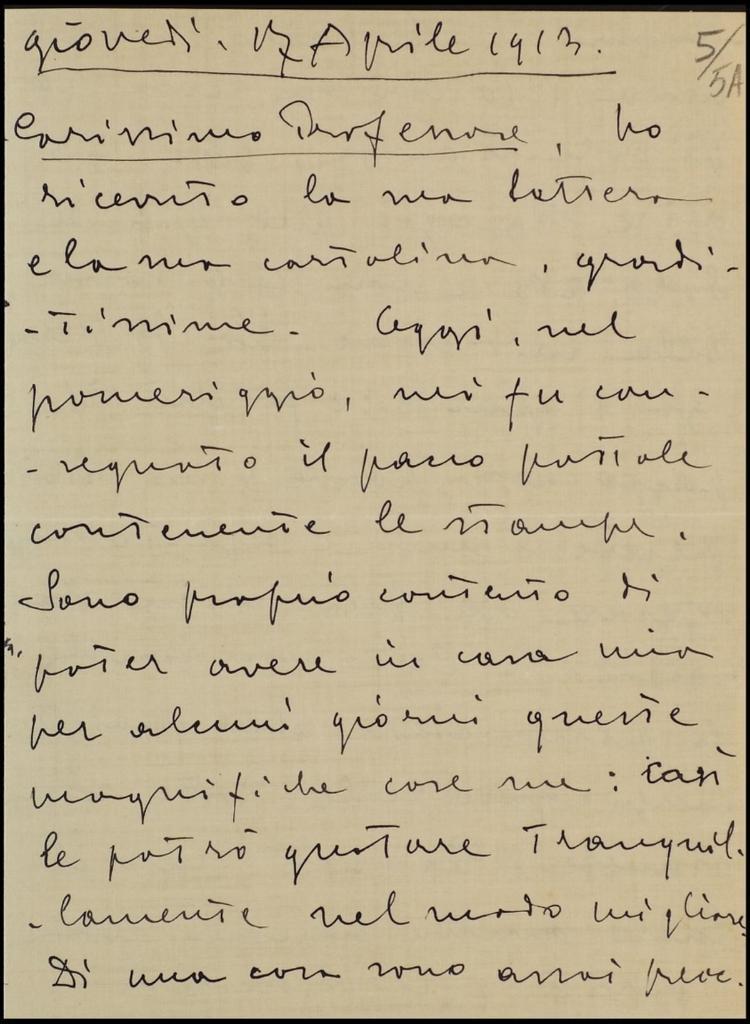 giovedì. 17 Aprile 1913.
5/5A
Carissimo Professore, ho
ricevuto la sua lettera
e la sua cartolina, gradi-
-tissime. Oggi, nel
pomeriggio, mi fu con-
-segnato il pacco postale
contenente le stampe.
Sono proprio contento di
poter avere in casa mia
per alcuni giorni queste
magnifiche cose sue: così
le potrò gustare tranquil-
-lamente nel modo migliore.
Di una cosa sono assai preoc-